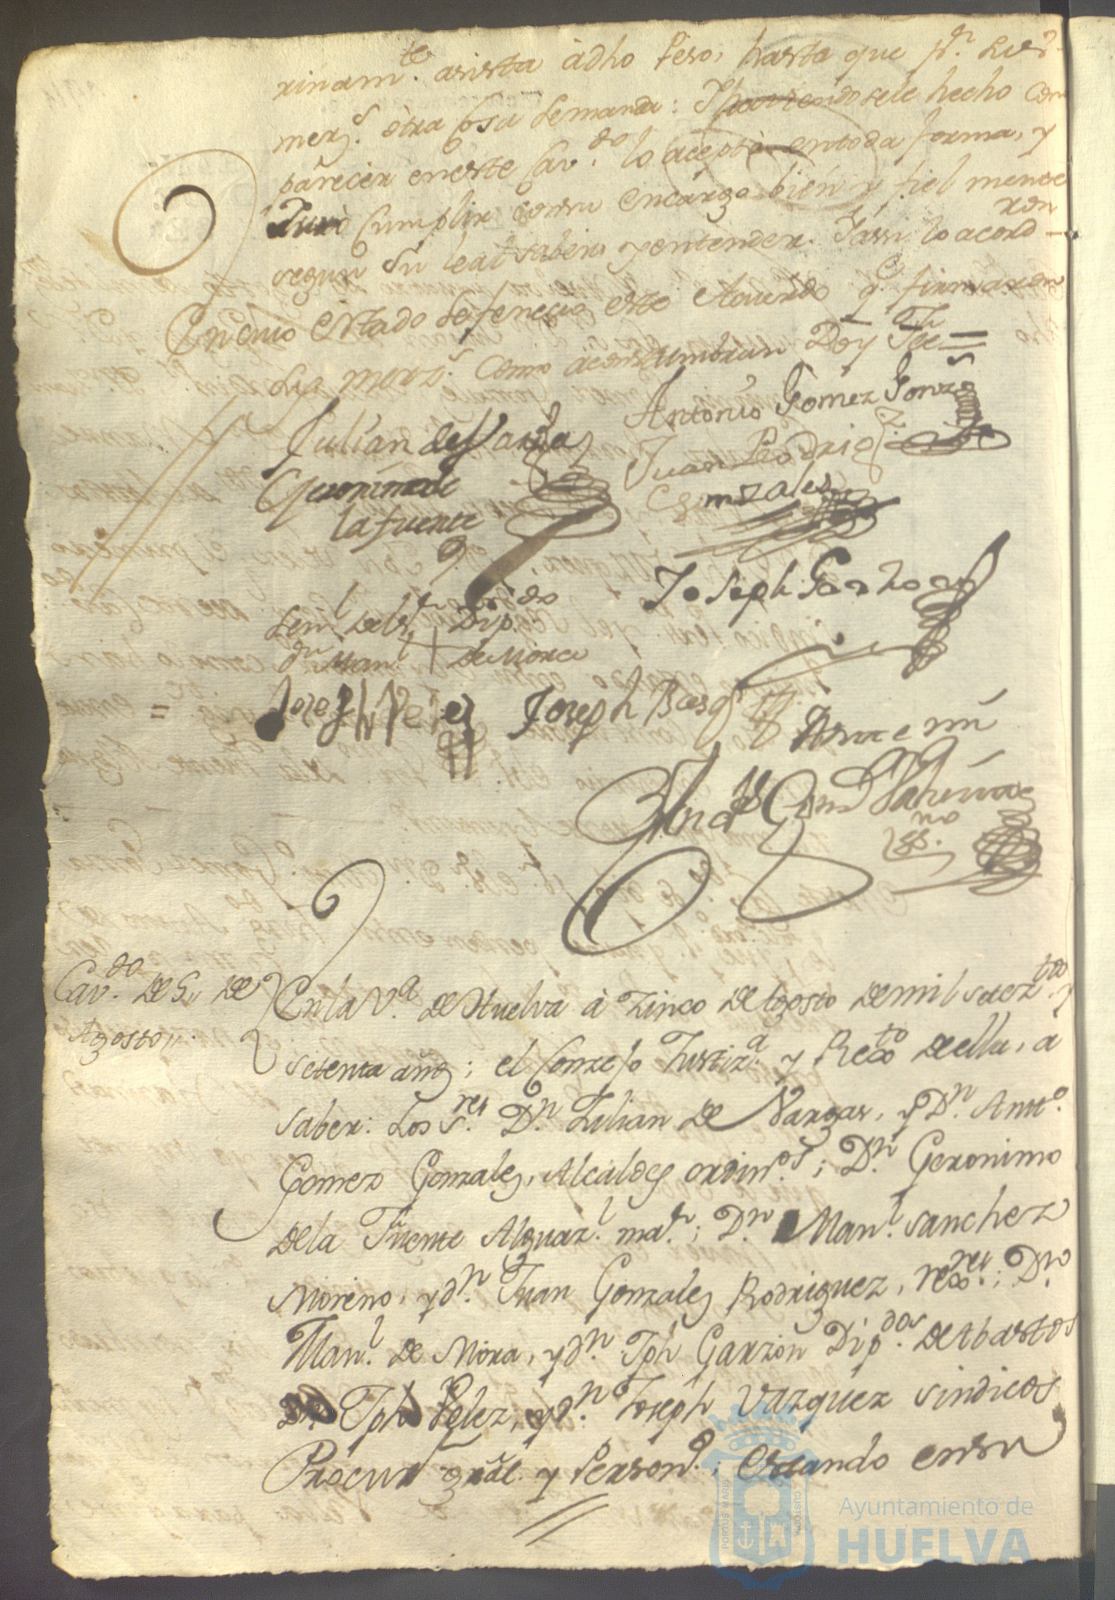 rinam.te asista à dho Peso, hasta que p.r Sus
merz.s otra cosa semande: Y haviendosele hecho com
parecer eneste Cav.do lo aceptó entoda forma, y
Juró Cumplir consu encargo bien y fiel mente
segun su leal saber, y entender. Y assi lo acorda
ron
En cuio estado sefeneció este Acuerdo q.e firmaron
Sus merz.s como acostumbran Doy Fee =
Antonio Gomez Gonz.s
Julian de Vargas
Juan Rodrig.z
Geronimo de
Gonzales
la fuente
Joseph Garzon
Señ.l del S.r Dip.do
D.n Man.l + de Mora
Joseph Pelez
Joseph Basq.z
Ante mí
no
ss.
Cav.do de 5,, de
Agosto,,
En la V.a de Huelva à Zinco de Agosto de mil setez.tos y
setenta años; el Conzejo Justiz.a y Rex.to de ella, a
saber: Los S.res D.n Julian de Vargas, y D.n Antt.o
Gomez Gonzales, Alcaldes ordin.os; D.n Geronimo
dela Fuente Alguaz.l ma.r; D.n Man.l Sanchez
Moreno, y d.n Juan Gonzales Rodriguez, rex.res; D.n
Man.l de Mora, y d.n Jph Garzon Dip.dos de Abastos
D.n Jph Pelez, y d.n Joseph Vazquez sindicos
Procur.r gral. y Person.o; Estando en su
Ayuntamiento de
HUELVA